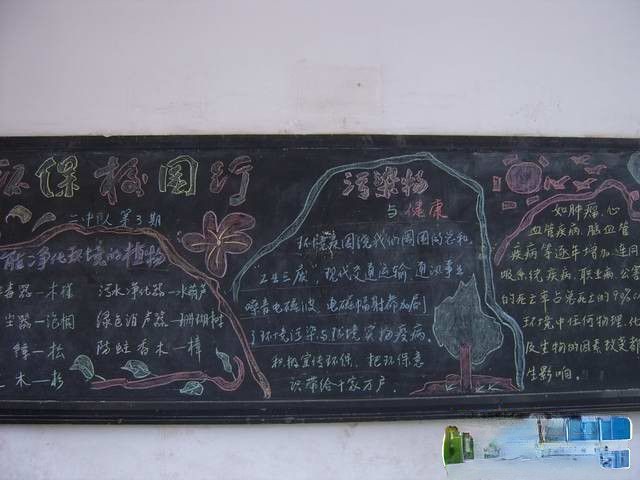 环保校园行
二中队第3期
能净化环境的植物
毒器—木槿 污水净化器—水葫芦
尘器—泡桐 绿色消声器—珊瑚树
樟—松 防蛀香木 樟
木—杉
污染物
与健康
环境
"工业三废"现代交通运输 通讯事业
噪音电磁波 电磁辐射都加剧
了环境污染与环境
积极宣传环保,把环保意
识带给千家万户.
如肿瘤、心
血管疾病 脑血管
疾病等逐年增加 连同
吸系统疾病,职业病,公害
的死亡率占总死亡的9%
环境中任何物理、化
及生物的因素改变都
生影响。